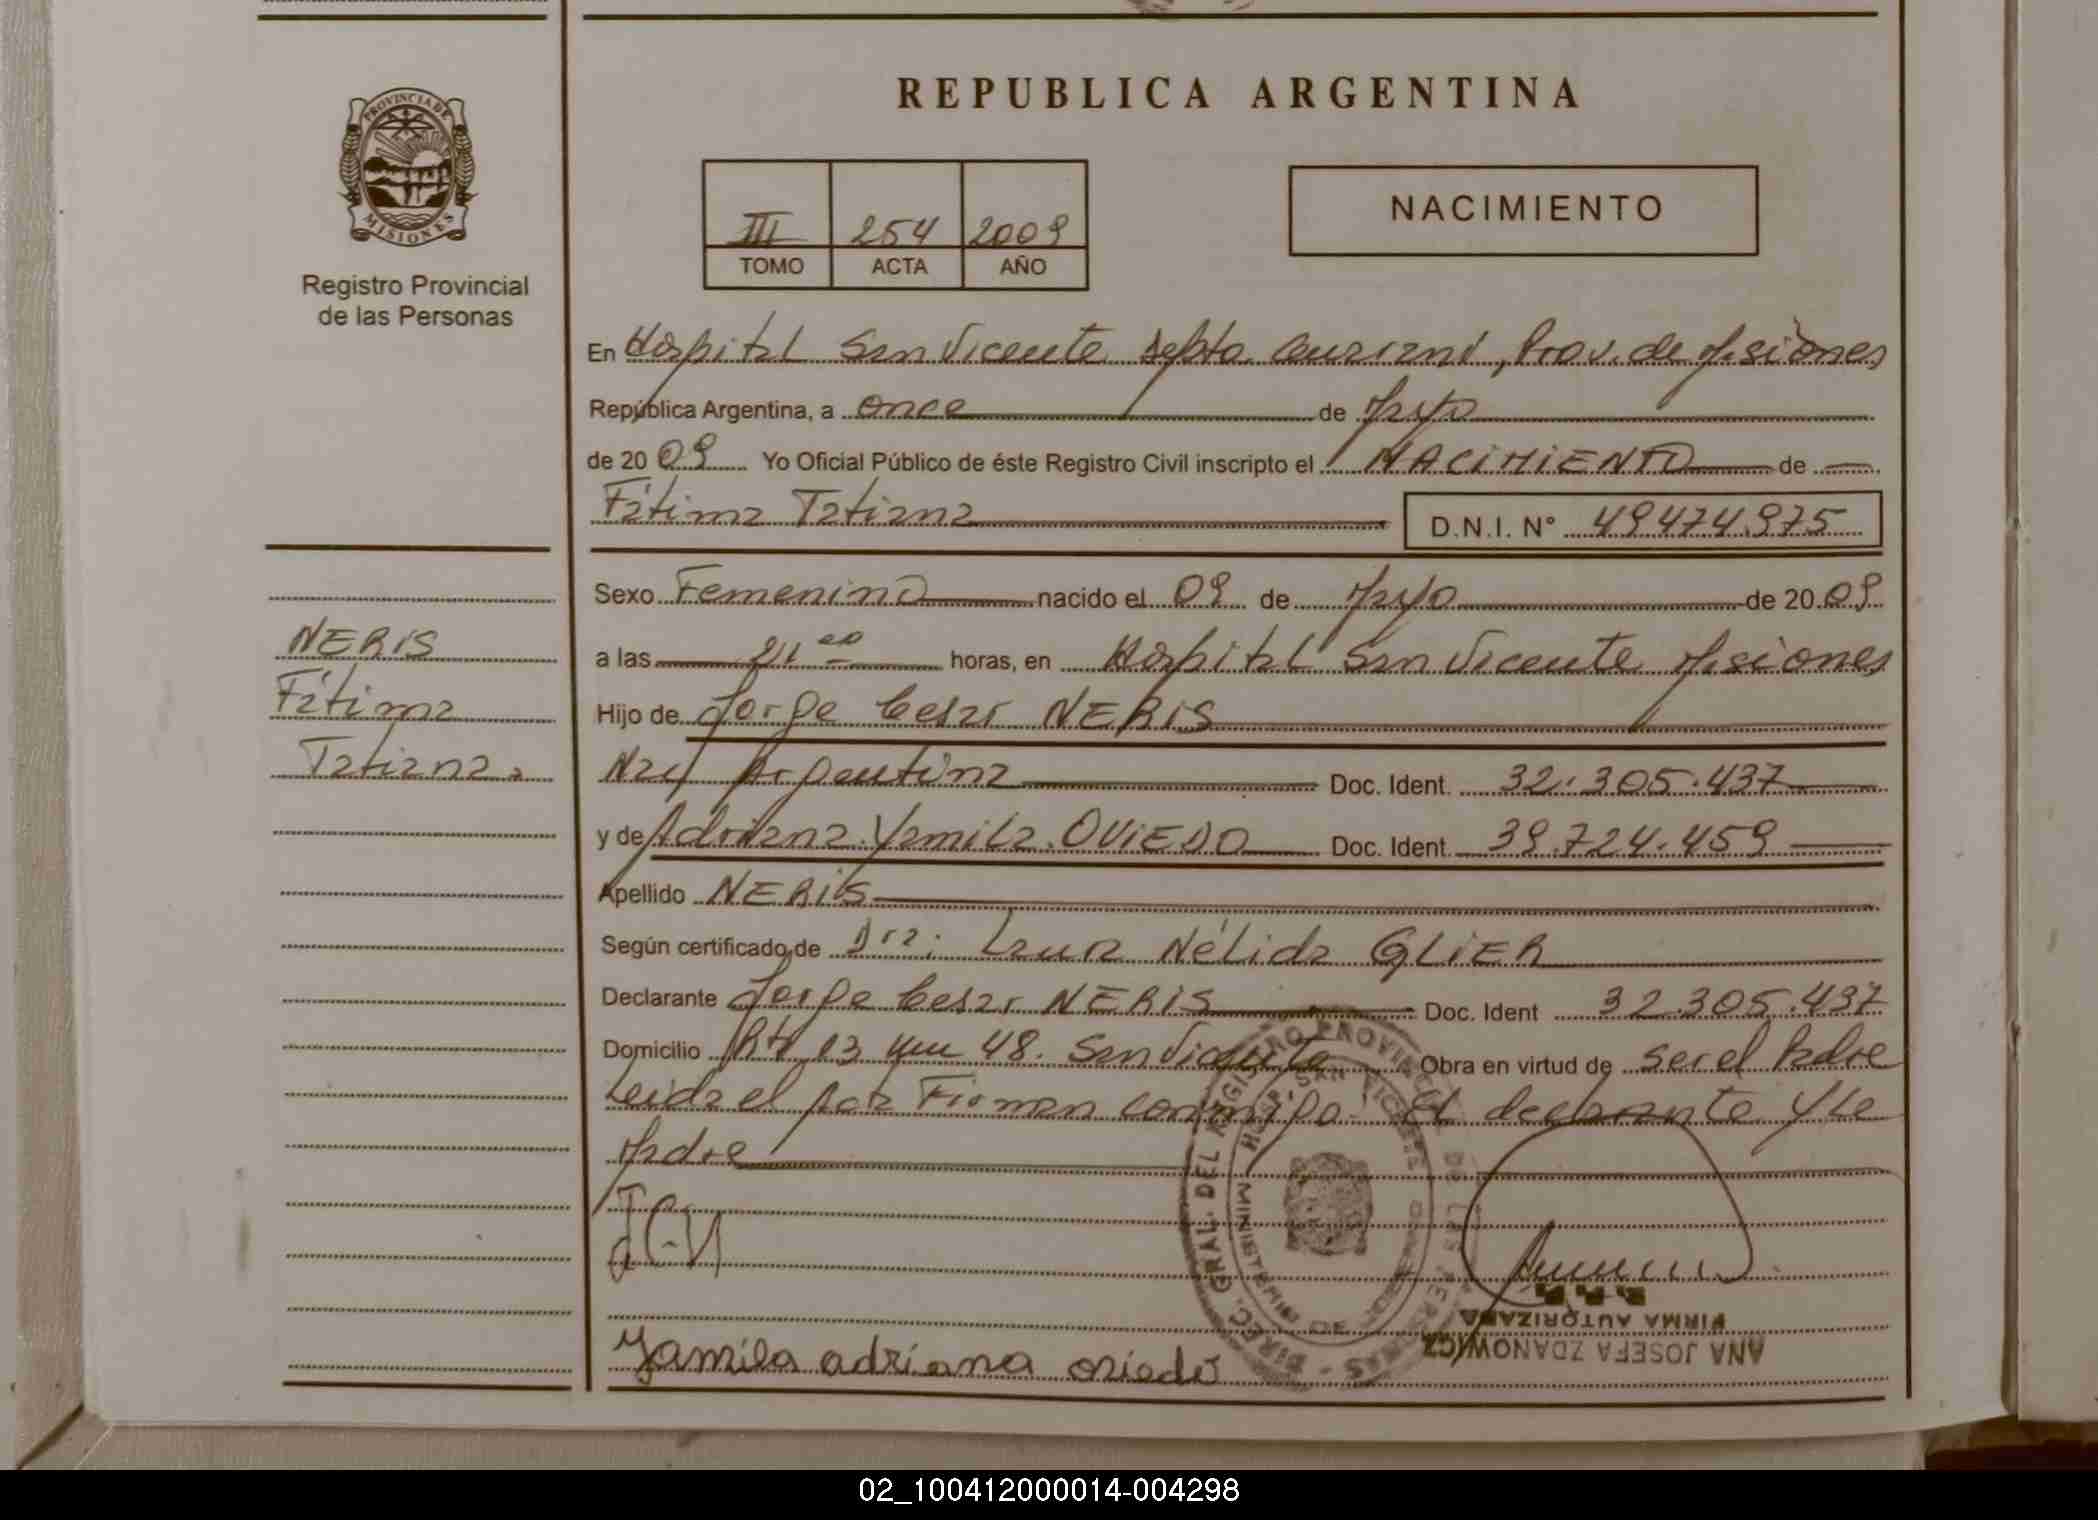 REPUBLICA ARGENTINA
PROVINCIA DE
MISIONES
Registro Provincial
de las Personas
III 254 2009
TOMO ACTA AÑO
NACIMIENTO
En Hospital San Vicente Depto Guaraní, Prov. de Misiones
República Argentina, a once de Mayo
de 2009 Yo Oficial Público de éste Registro Civil inscripto el NACIMIENTO de
Fátima Tatiana D.N.I. N° 49474.975
NERIS
Fátima
Tatiana.
Sexo Femenino nacido el 09 de Mayo de 2009
a las horas, en Hospital San Vicente Misiones
Hijo de Jorge Cesar NERIS
Nac Argentina Doc. Ident. 32.305.437
y de Adriana Yamila OVIEDO Doc. Ident. 39.724.459
Apellido NERIS
Según certificado de Dra: Laura Nélida GLIER
Declarante Jorge Cesar NERIS Doc. Ident 32.305.437
Domicilio Rta 13 Km 48. San Vicente Obra en virtud de ser el Padre
Leida el Firman conmigo El declarante y La
Madre
J C N
DIREC. GRAL. DEL REGISTRO PROVINCIAL DE LAS PERSONAS
MINISTERIO DE
HOSP SAN VICENTE
R.P.P.
FIRMA AUTORIZADA
ANA JOSEFA ZDANOWICZ
Yamila adriana oviedo
02_100412000014-004298